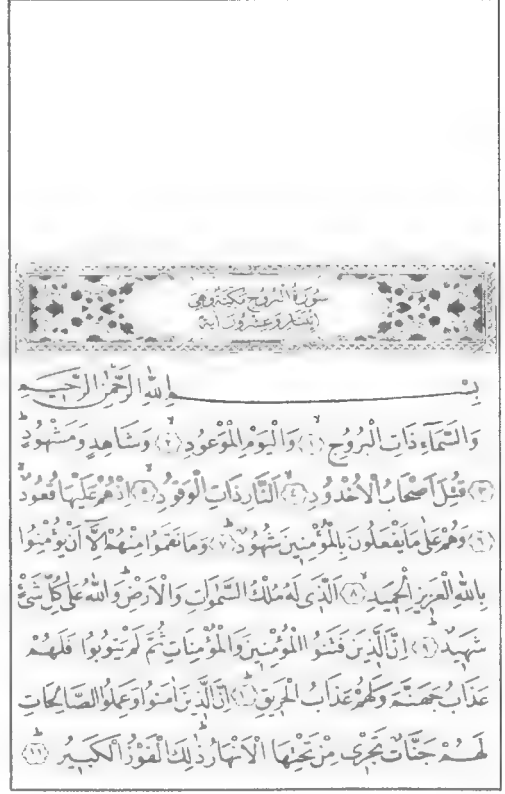 سُورَةُ الْبُرُوجِ مَكِّيَّةٌ وَهِيَ
اِثْنَتَانِ وَعِشْرُونَ اٰيَةً
بِسْــــــمِ اللّٰهِ الرَّحْمٰنِ الرَّحٖيمِ
وَالسَّمَٓاءِ ذَاتِ الْبُرُوجِۙ ﴿١﴾ وَالْيَوْمِ الْمَوْعُودِۙ ﴿٢﴾ وَشَاهِدٍ وَمَشْهُودٍۜ
﴿٣﴾ قُتِلَ اَصْحَابُ الْاُخْدُودِۙ ﴿٤﴾ اَلنَّارِ ذَاتِ الْوَقُودِۙ ﴿٥﴾ اِذْ هُمْ عَلَيْهَا قُعُودٌۙ
﴿٦﴾ وَهُمْ عَلٰى مَا يَفْعَلُونَ بِالْمُؤْمِنٖينَ شُهُودٌۜ ﴿٧﴾ وَمَا نَقَمُوا مِنْهُمْ اِلَّٓا اَنْ يُؤْمِنُوا
بِاللّٰهِ الْعَزٖيزِ الْحَمٖيدِۙ ﴿٨﴾ اَلَّذٖى لَهُ مُلْكُ السَّمٰوَاتِ وَالْاَرْضِۜ وَاللّٰهُ عَلٰى كُلِّ شَىْءٍ
شَهٖيدٌۜ ﴿٩﴾ اِنَّ الَّذٖينَ فَتَنُوا الْمُؤْمِنٖينَ وَالْمُؤْمِنَاتِ ثُمَّ لَمْ يَتُوبُوا فَلَهُمْ
عَذَابُ جَهَنَّمَ وَلَهُمْ عَذَابُ الْحَرٖيقِۜ ﴿١٠﴾ اِنَّ الَّذٖينَ اٰمَنُوا وَعَمِلُوا الصَّالِحَاتِ
لَهُمْ جَنَّاتٌ تَجْرٖى مِنْ تَحْتِهَا الْاَنْهَارُۜ ذٰلِكَ الْفَوْزُ الْكَبٖيرُۜ ﴿١١﴾